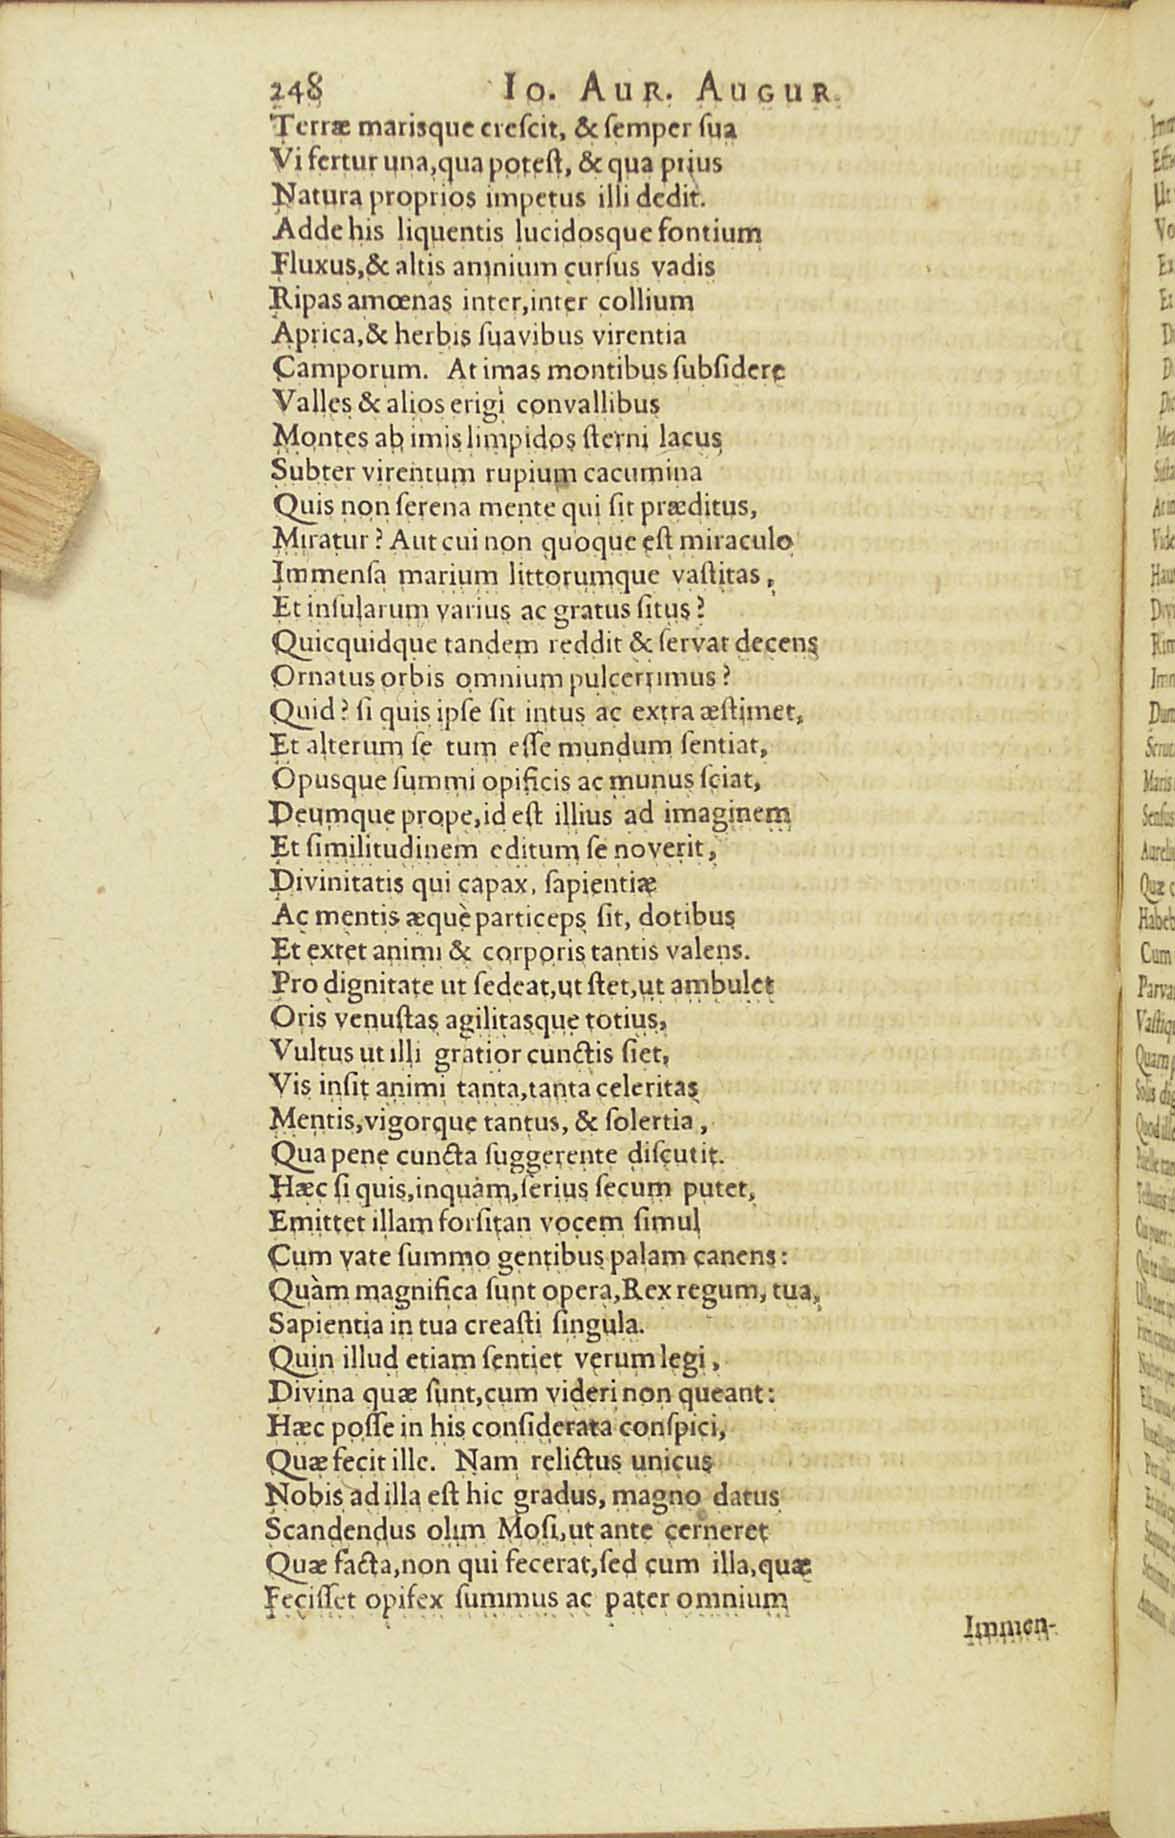 248 Io. Aur. Augur.
Terræ marisque crescit, & semper sua
Vi fertur una, qua potest, & qua prius
Natura proprios impetus illi dedit.
Adde his liquentis lucidosque fontium
Fluxus, & altis amnium cursus vadis
Ripas amœnas inter, inter collium
Aprica, & herbis suavibus virentia
Camporum. At imas montibus subsidere
Valles & alios erigi convallibus
Montes ab imis limpidos sterni lacus
Subter virentum rupium cacumina
Quis non serena mente qui sit præditus,
Miratur? Aut cui non quoque est miraculo
Immensa marium littorumque vastitas,
Et insularum varius ac gratus situs?
Quicquidque tandem reddit & servat decens
Ornatus orbis omnium pulcerrimus?
Quid? si quis ipse sit intus ac extra æstimet,
Et alterum se tum esse mundum sentiat,
Opusque summi opificis ac munus sciat,
Deumque prope, id est illius ad imaginem
Et similitudinem editum se noverit,
Divinitatis qui capax, sapientiæ
Ac mentis æquè particeps sit, dotibus
Et extet animi & corporis tantis valens.
Pro dignitate ut sedeat, ut stet, ut ambulet
Oris venustas agilitasque totius,
Vultus ut illi gratior cunctis siet,
Vis insit animi tanta, tanta celeritas
Mentis, vigorque tantus, & solertia,
Qua pene cuncta suggerente discutit.
Hæc si quis, inquam, serius secum putet,
Emittet illam forsitan vocem simul
Cum vate summo gentibus palam canens:
Quàm magnifica sunt opera, Rex regum, tua,
Sapientia in tua creasti singula.
Quin illud etiam sentiet verum legi,
Divina quæ sunt, cum videri non queant:
Hæc posse in his considerata conspici,
Quæ fecit ille. Nam relictus unicus
Nobis ad illa est hic gradus, magno datus
Scandendus olim Mosi, ut ante cerneret
Quæ facta, non qui fecerat, sed cum illa, quæ
Fecisset opifex summus ac pater omnium
Immen-